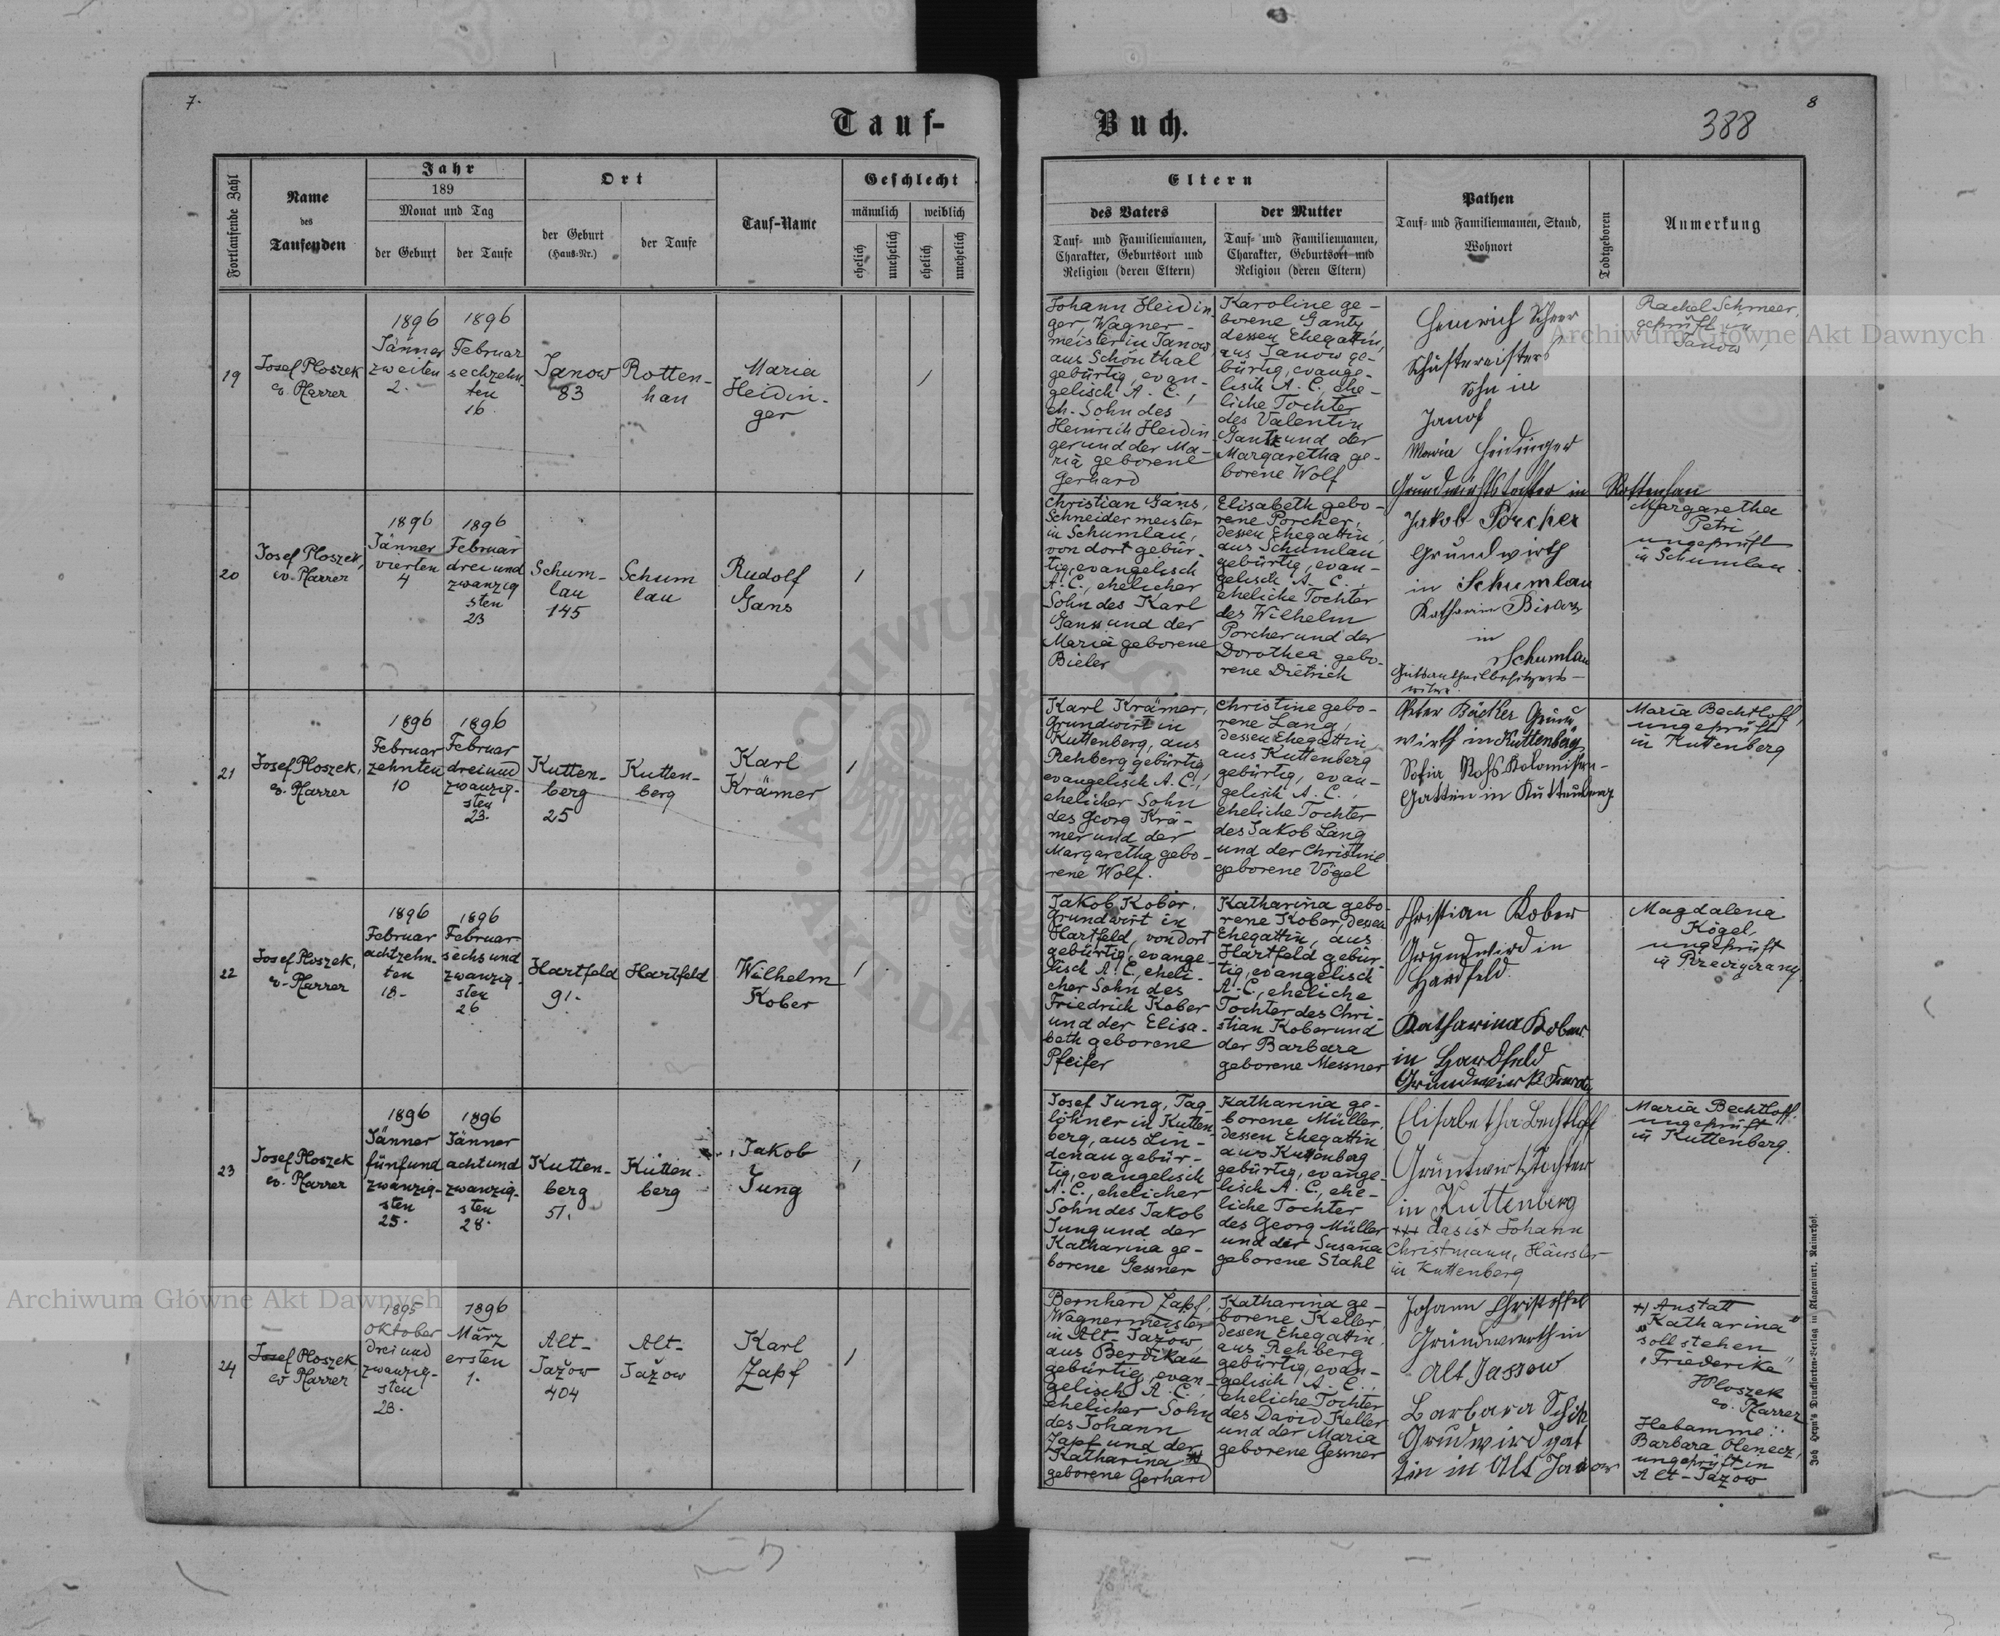 7.
8
388
Tauf-
Buch.
Fortlaufende Zahl
Name
des
Taufenden
Jahr
189
Monat und Tag
der Geburt
der Taufe
Ort
der Geburt
(Haus-Nr.)
der Taufe
Tauf-Name
Geschlecht
männlich
weiblich
ehelich
unehelich
ehelich
unehelich
Eltern
des Vaters
Tauf- und Familiennamen,
Charakter, Geburtsort und
Religion (deren Eltern)
der Mutter
Tauf- und Familiennamen,
Charakter, Geburtsort und
Religion (deren Eltern)
Pathen
Tauf- und Familiennamen, Stand,
Wohnort
Todtgeboren
Anmerkung
19
Josef Ploszek
ev. Pfarrer
1896
Jänner
zweiten
2.
1896
Februar
sechzehn-
ten
16.
Janow
83
Rotten-
han
Maria
Heidin-
ger
/
Johann Heidin-
ger, Wagner-
meister in Janow,
aus Schönthal
gebürtig, evan-
gelisch A. C.,
eh. Sohn des
Heinrich Heidin-
ger und der Ma-
ria geborene
Gerhard
Karoline ge-
borene Gantz,
dessen Ehegattin,
aus Janow ge-
bürtig, evange-
lisch A. C., ehe-
liche Tochter
des Valentin
Gantz und der
Margaretha ge-
borene Wolf
Heinrich Scheer
Sohn in
Janof
Maria Heidinger
Grundwirthstochter in Rottenhan
Rachel Schmeer,
geprüft in
Janow
20
Josef Ploszek,
ev. Pfarrer
1896
Jänner
vierten
4
1896
Februar
drei und
zwanzig
sten
23
Schum-
lau
145
Schum
lau
Rudolf
Gans
/
Christian Gans,
Schneidermeister
in Schumlau,
von dort gebür-
tig, evangelisch
A. C., ehelicher
Sohn des Karl
Ganss und der
Maria geborene
Bieler
Elisabeth gebo-
rene Porcher,
dessen Ehegattin,
aus Schumlau
gebürtig, evan-
gelisch A. C.,
eheliche Tochter
des Wilhelm
Porcher und der
Dorothea gebo-
rene Dietrich
Jakob Porcher
Grundwirth
in Schumlau
in
Schumlau
Gutsantheilbesitzers-
witwe
Margaretha
Petri
ungeprüft
in Schumlau.
21
Josef Ploszek,
ev. Pfarrer
1896
Februar
zehnten
10
1896
Februar
drei und
zwanzig-
sten
23.
Kutten-
berg
25
Kutten-
berg
Karl
Krämer
/
Karl Krämer,
Grundwirt in
Kuttenberg, aus
Rehberg gebürtig
evangelisch A. C.,
ehelicher Sohn
des Georg Krä-
mer und der
Margaretha gebo-
rene Wolf.
Christine gebo-
rene Lang,
dessen Ehegattin
aus Kuttenberg
gebürtig, evan-
gelisch A. C.,
eheliche Tochter
des Jakob Lang
und der Christine
geborene Vögel
Peter Bäcker Grund
wirth in Kuttenberg
Sofia Rohs Kolonisten-
Gattin in Kuttenberg.
Maria Bechtloff,
ungeprüft
in Kuttenberg
22
Josef Ploszek,
ev. Pfarrer
1896
Februar
achtzehn-
ten
18.-
1896
Februar
sechs und
zwanzig-
sten
26
Hartfeld
91.
Hartfeld
Wilhelm
Kober
/
Jakob Kober,
Grundwirt in
Hartfeld, von dort
gebürtig, evange-
lisch A. C., eheli-
cher Sohn des
Friedrich Kober
und der Elisa-
beth geborene
Pfeifer
Katharina gebo-
rene Kober, dessen
Ehegattin, aus
Hartfeld gebür-
tig, evangelisch
A. C., eheliche
Tochter des Chri-
stian Kober und
der Barbara
geborene Messner
Christian Kober
Grundwird in
Hardfeld.
Katharina Kober
in Hardfeld
Magdalena
Kogel,
ungeprüft
23
Josef Ploszek
ev. Pfarrer
1896
Jänner
fünf und
zwanzig-
sten
25.
1896
Jänner
acht und
zwanzig-
sten
28.
Kutten-
berg
51.
Kutten-
berg
Jakob
Jung
/
Josef Jung, Tag-
löhner in Kutten-
berg, aus Lin-
denau gebür-
tig, evangelisch
A. C., ehelicher
Sohn des Jakob
Jung und der
Katharina ge-
borene Gessner
Katharina ge-
borene Müller,
dessen Ehegattin
aus Kuttenberg
gebürtig, evange-
lisch A. C., ehe-
liche Tochter
des Georg Müller
und der Susana
geborene Stahl
Elisabetha Bechtloff
Gruntwirtztochter
in Kuttenberg
+++ das ist Johann
Christmann, Häusler
in Kuttenberg
Maria Bechtloff,
ungeprüft
in Kuttenberg.
24
Josef Ploszek
ev. Pfarrer
1895
Oktober
drei und
zwanzig-
sten
23.
1896
März
ersten
1.
Alt-
Jažow
404
Alt-
Jažow
Karl
Zapf
/
Bernhard Zapf,
Wagnermeister
in Alt-Jažow,
aus Berdikau
gebürtig, evan-
gelisch A. C.,
ehelicher Sohn
des Johann
Zapf und der
Katharina +)
geborene Gerhard
Katharina ge-
borene Keller
dessen Ehegattin,
aus Rehberg
gebürtig, evan-
gelisch A. C.,
eheliche Tochter
des David Keller
und der Maria
geborene Gessner
Johann Christoffel
Grundwerth in
Alt Jassow
Barbara Schik
Grudwird gat
tin in Alt Jasow
+) Anstatt
„Katharina"
soll stehen
„Friederike"
JPloszek
ev. Pfarrer
Hebamme:
Barbara Olenecz,
ungeprüft in
Alt-Jažow
Joh. Heyn's Drucksorten-Verlag in Klagenfurt, Rainerhof.
Archiwum Główne Akt Dawnych
Archiwum Główne Akt Dawnych
ARCHIWUM GŁÓWNE AKT DAWNYCH